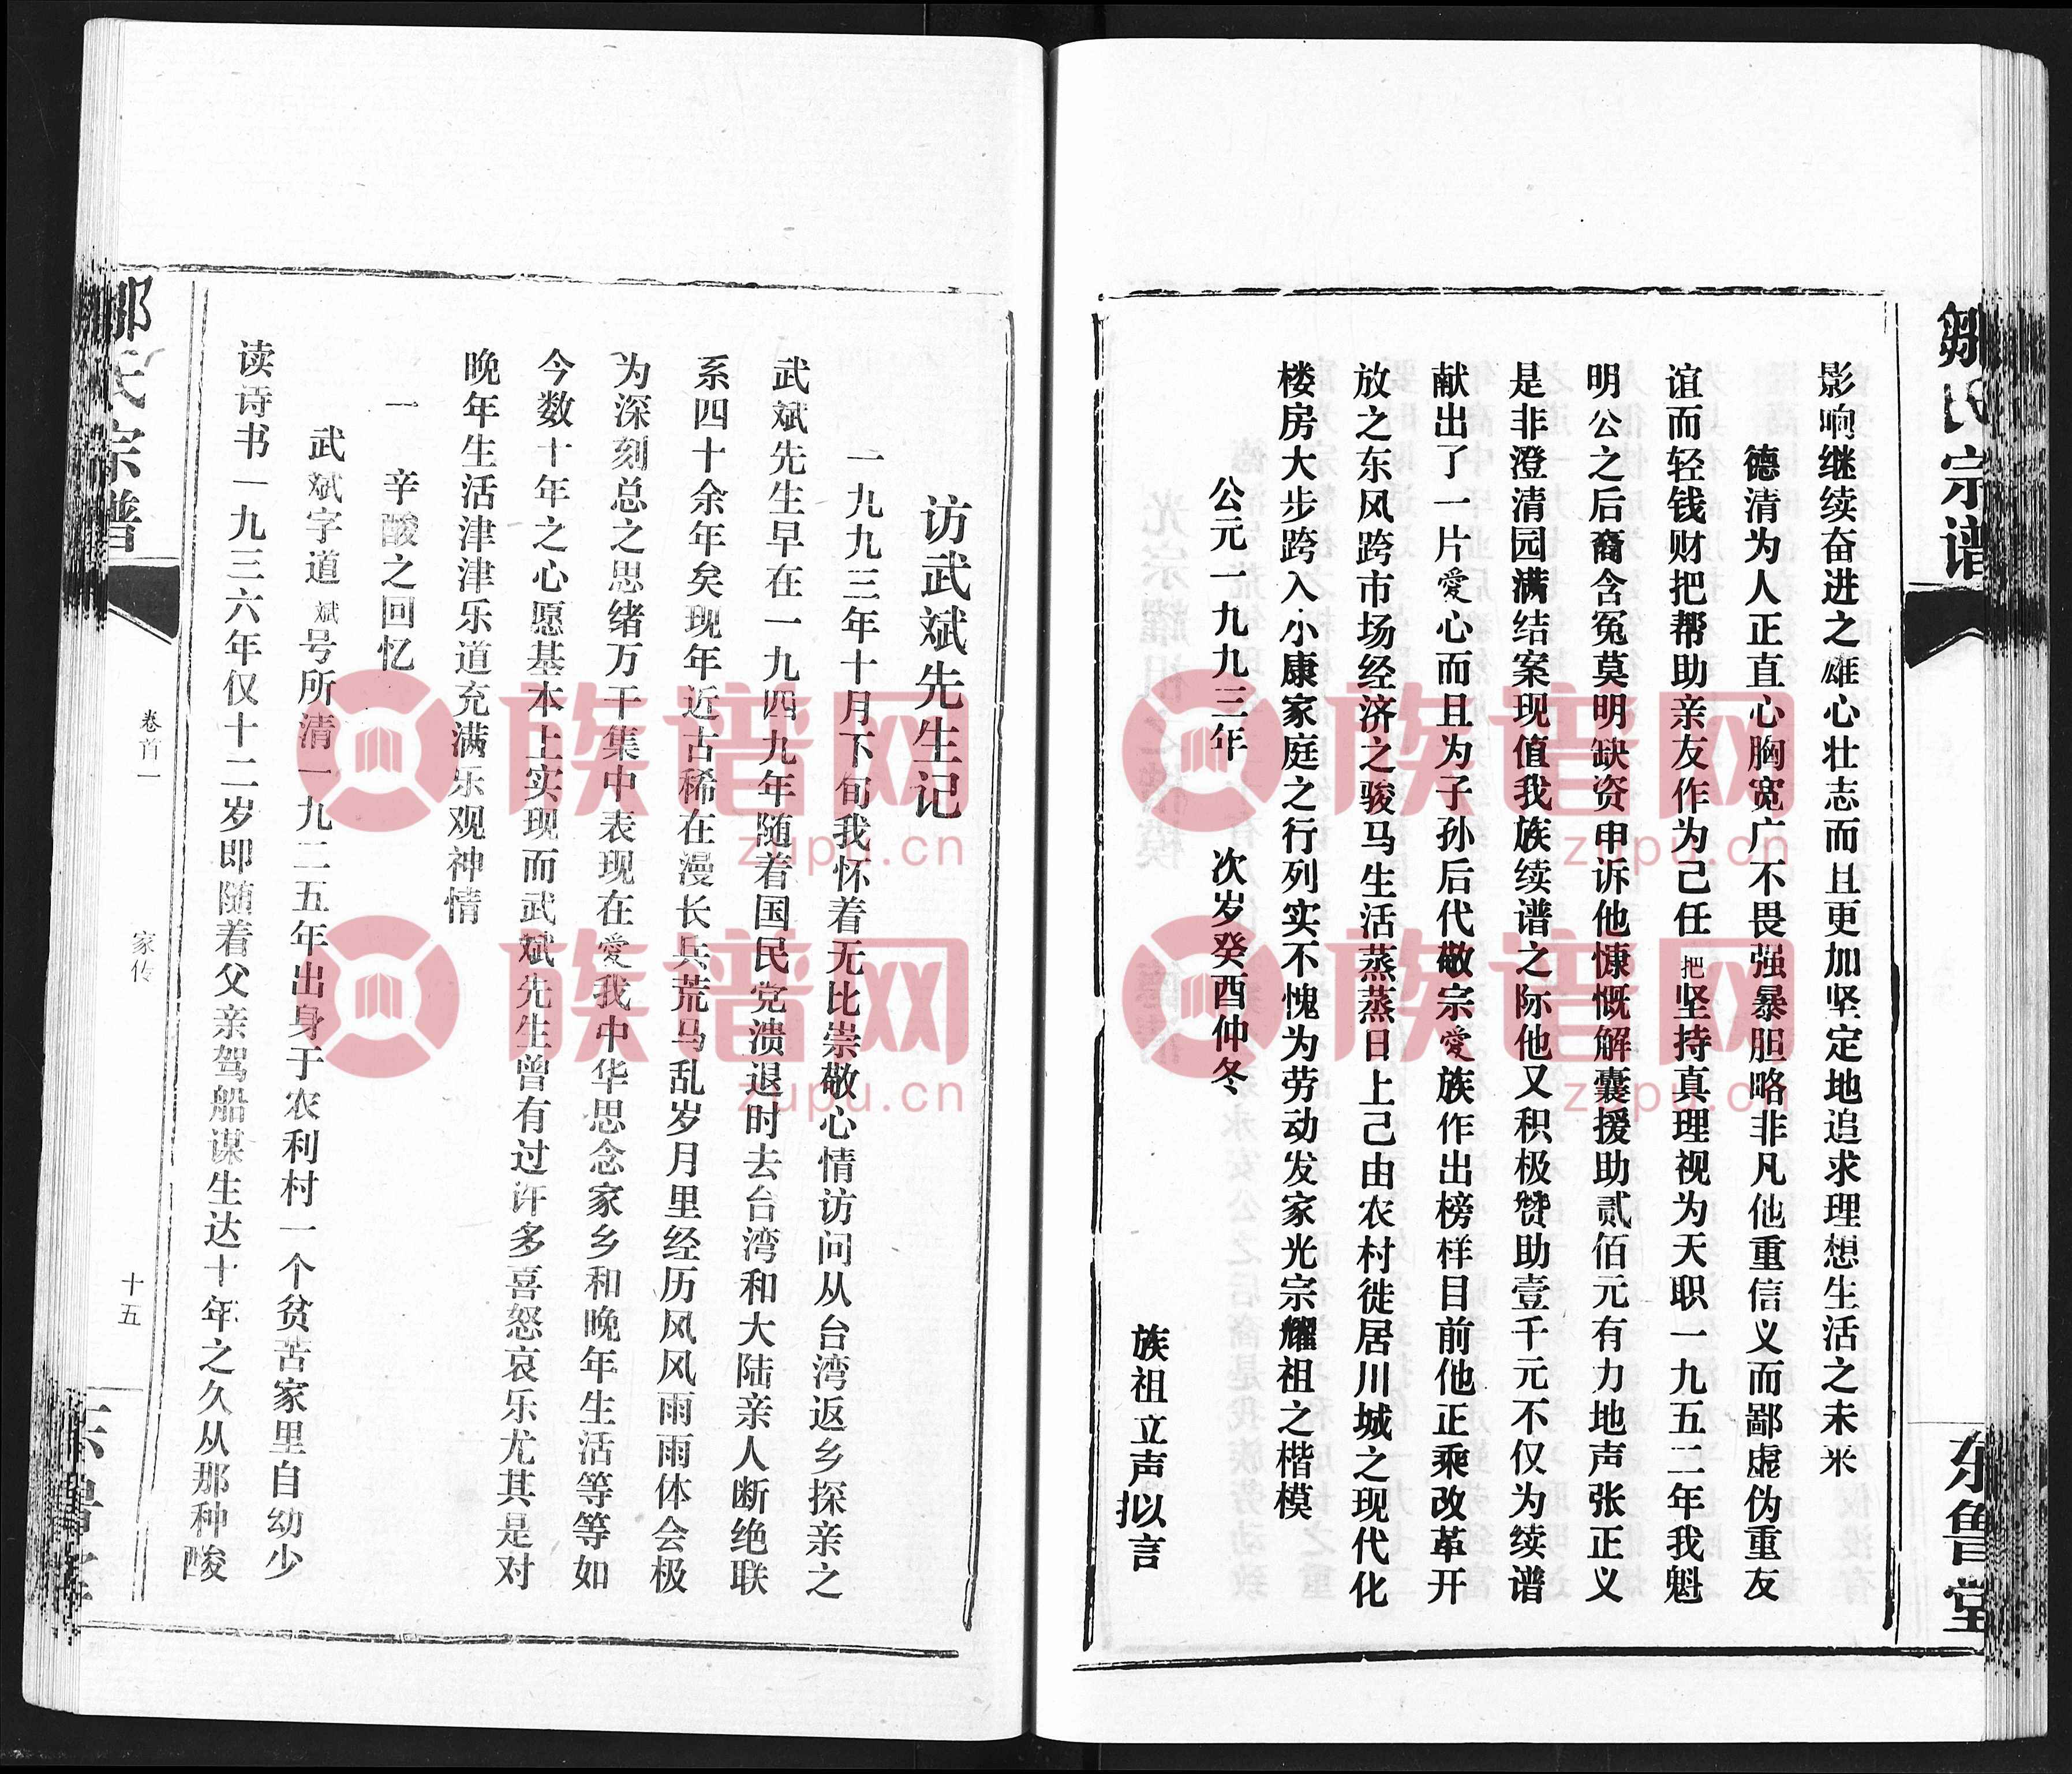 邹氏宗谱
东鲁堂
影响继续奋进之雄心壮志而且更加坚定地追求理想生活之未来
德清为人正直心胸宽广不畏强暴胆略非凡他重信义而鄙虚伪重友
谊而轻钱财把帮助亲友作为己任把坚持真理视为天职一九五二年我魁
明公之后裔含冤莫明缺资申诉他慷慨解囊援助贰佰元有力地声张正义
是非澄清园满结案现值我族续谱之际他又积极赞助壹千元不仅为续谱
献出了一片愛心而且为子孙后代敬宗愛族作出榜样目前他正乘改革开
放之东风跨市场经济之骏马生活蒸蒸日上己由农村徙居川城之现代化
楼房大步跨入小康家庭之行列实不愧为劳动发家光宗耀祖之楷模
公元一九九三年 次岁癸酉仲冬
族祖立声拟言
访武斌先生记
一九九三年十月下旬我怀着无比崇敬心情访问从台湾返乡探亲之
武斌先生早在一九四九年随着国民党溃退时去台湾和大陆亲人断绝联
系四十余年矣现年近古稀在漫长兵荒马乱岁月里经历风风雨雨体会极
为深刻总之思绪万千集中表现在愛我中华思念家乡和晚年生活等等如
今数十年之心愿基本上实现而武斌先生曾有过许多喜怒哀乐尤其是对
晚年生活津津乐道充满乐观神情
一 辛酸之回忆
武斌字道斌号所清一九二五年出身于农利村一个贫苦家里自幼少
读诗书一九三六年仅十二岁即随着父亲驾船谋生达十年之久从那种酸
卷首一
家传
十五
族谱网
zupu.cn
族谱网
zupu.cn
族谱网
zupu.cn
族谱网
zupu.cn